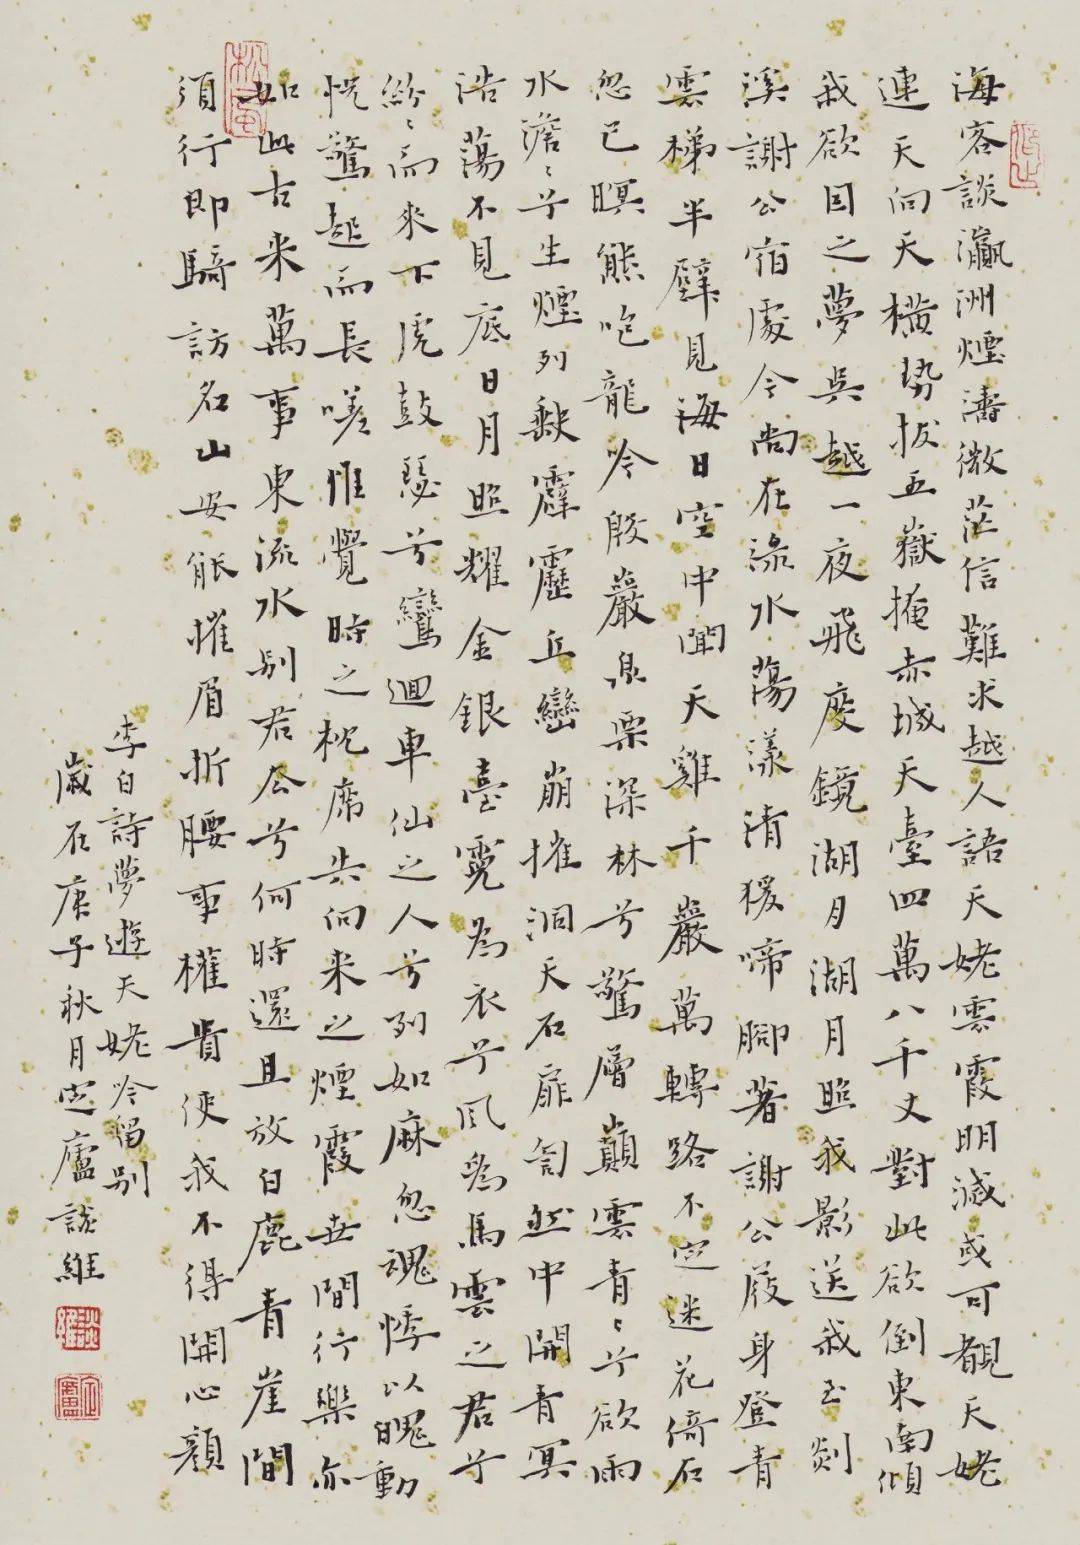 海客談瀛洲煙濤微茫信難求越人語天姥雲霞明滅或可覩天姥
連天向天橫勢拔五嶽掩赤城天臺四萬八千丈對此欲倒東南傾
我欲因之夢吳越一夜飛度鏡湖月湖月照我影送我至剡
溪謝公宿處今尚在淥水蕩漾清猨啼腳著謝公屐身登青
雲梯半壁見海日空中聞天雞千巖萬轉路不定迷花倚石
忽已暝熊咆龍吟殷巖泉栗深林兮驚層巔雲青〻兮欲雨
水澹〻兮生煙列缺霹靂丘巒崩摧洞天石扉訇然中開青冥
浩蕩不見底日月照耀金銀臺霓為衣兮風為馬雲之君兮
紛〻而來下虎鼓瑟兮鸞迴車仙之人兮列如麻忽魂悸以魄動
怳驚起而長嗟惟覺時之枕席失向來之煙霞世間行樂亦
如此古來萬事東流水別君去兮何時還且放白鹿青崖間
須行即騎訪名山安能摧眉折腰事權貴使我不得開心顏
李白詩夢遊天姥吟留別
歲在庚子秋月定廬談維
松風
談維
定廬